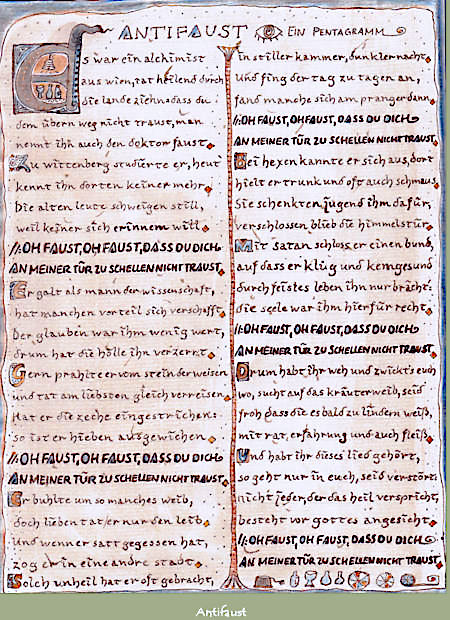 ANTIFAUST EIN PENTAGRAMM
Es war ein alchimist
aus wien, tat heilend durch
die lande ziehn, dass du
dem übern weg nicht traust, man
nennt ihn auch den doktor faust.
Zu wittenberg studierte er, heut
kennt ihn dorten keiner mehr,
Die alten leute schweigen still,
weil keiner sich erinnern will
//:OH FAUST, OH FAUST, DASS DU DICH
AN MEINER TÜR ZU SCHELLEN NICHT TRAUST.
Er galt als mann der wissenschaft,
hat manchen vorteil sich verschafft.
Der glauben war ihm wenig wert,
drum hat die hölle ihn verzerrt.
Gern prahlte er vom stein der weisen
und tat am liebsten gleich verreisen.
Hat er die zeche eingestrichen:
so ist er hieben ausgewichen.
//:OH FAUST, OH FAUST, DASS DU DICH
AN MEINER TÜR ZU SCHELLEN NICHT TRAUST.
Er buhlte um so manches weib,
doch lieben tat er nur den leib,
und wenn er satt gegessen hat,
zog er in eine andre stadt.
Solch unheil hat er oft gebracht,
in stiller kammer, dunkler nacht
Und fing der tag zu tagen an,
fand manche sich am pranger dann.
//:OH FAUST, OH FAUST, DASS DU DICH
AN MEINER TÜR ZU SCHELLEN NICHT TRAUST.
Bei hexen kannte er sich aus, dort
hielt er trunk und oft auch schmaus.
Sie schenkten jugend ihm dafür,
verschlossen blieb die himmelstür.
Mit Satan schloss er einen bund,
auf dass er klug und kerngesund
durch feistes leben ihn nur bracht:
die seele war ihm hierfür recht.
//:OH FAUST, OH FAUST, DASS DU DICH
AN MEINER TÜR ZU SCHELLEN NICHT TRAUST.
Drum habt ihr weh und zwickt's euch
wo, sucht auf das kräuterweib, seid
froh dass die es bald zu lindern weiß,
mit rat, erfahrung und auch fleiß.
Und habt ihr dieses lied gehört,
so geht nur in euch, seid verstört.
Nicht jeder, der das heil verspricht,
besteht vor gottes angesicht.
//:OH FAUST, OH FAUST, DASS DU DICH
AN MEINER TÜR ZU SCHELLEN NICHT TRAUST.
Antifaust